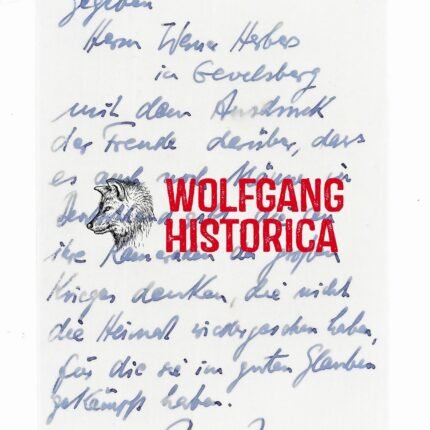 gegeben
Herrn Werner Herbers
in Gevelsberg
mit dem Ausdruck
der Freude darüber, dass
es auch noch Männer in
WOLFGANG
Deutschland gibt, die an
HISTORICA
ihre Kameraden des großen
Krieges denken, die nicht
die Heimat wiedergesehen haben,
für die sie im guten Glauben
gekämpft haben.